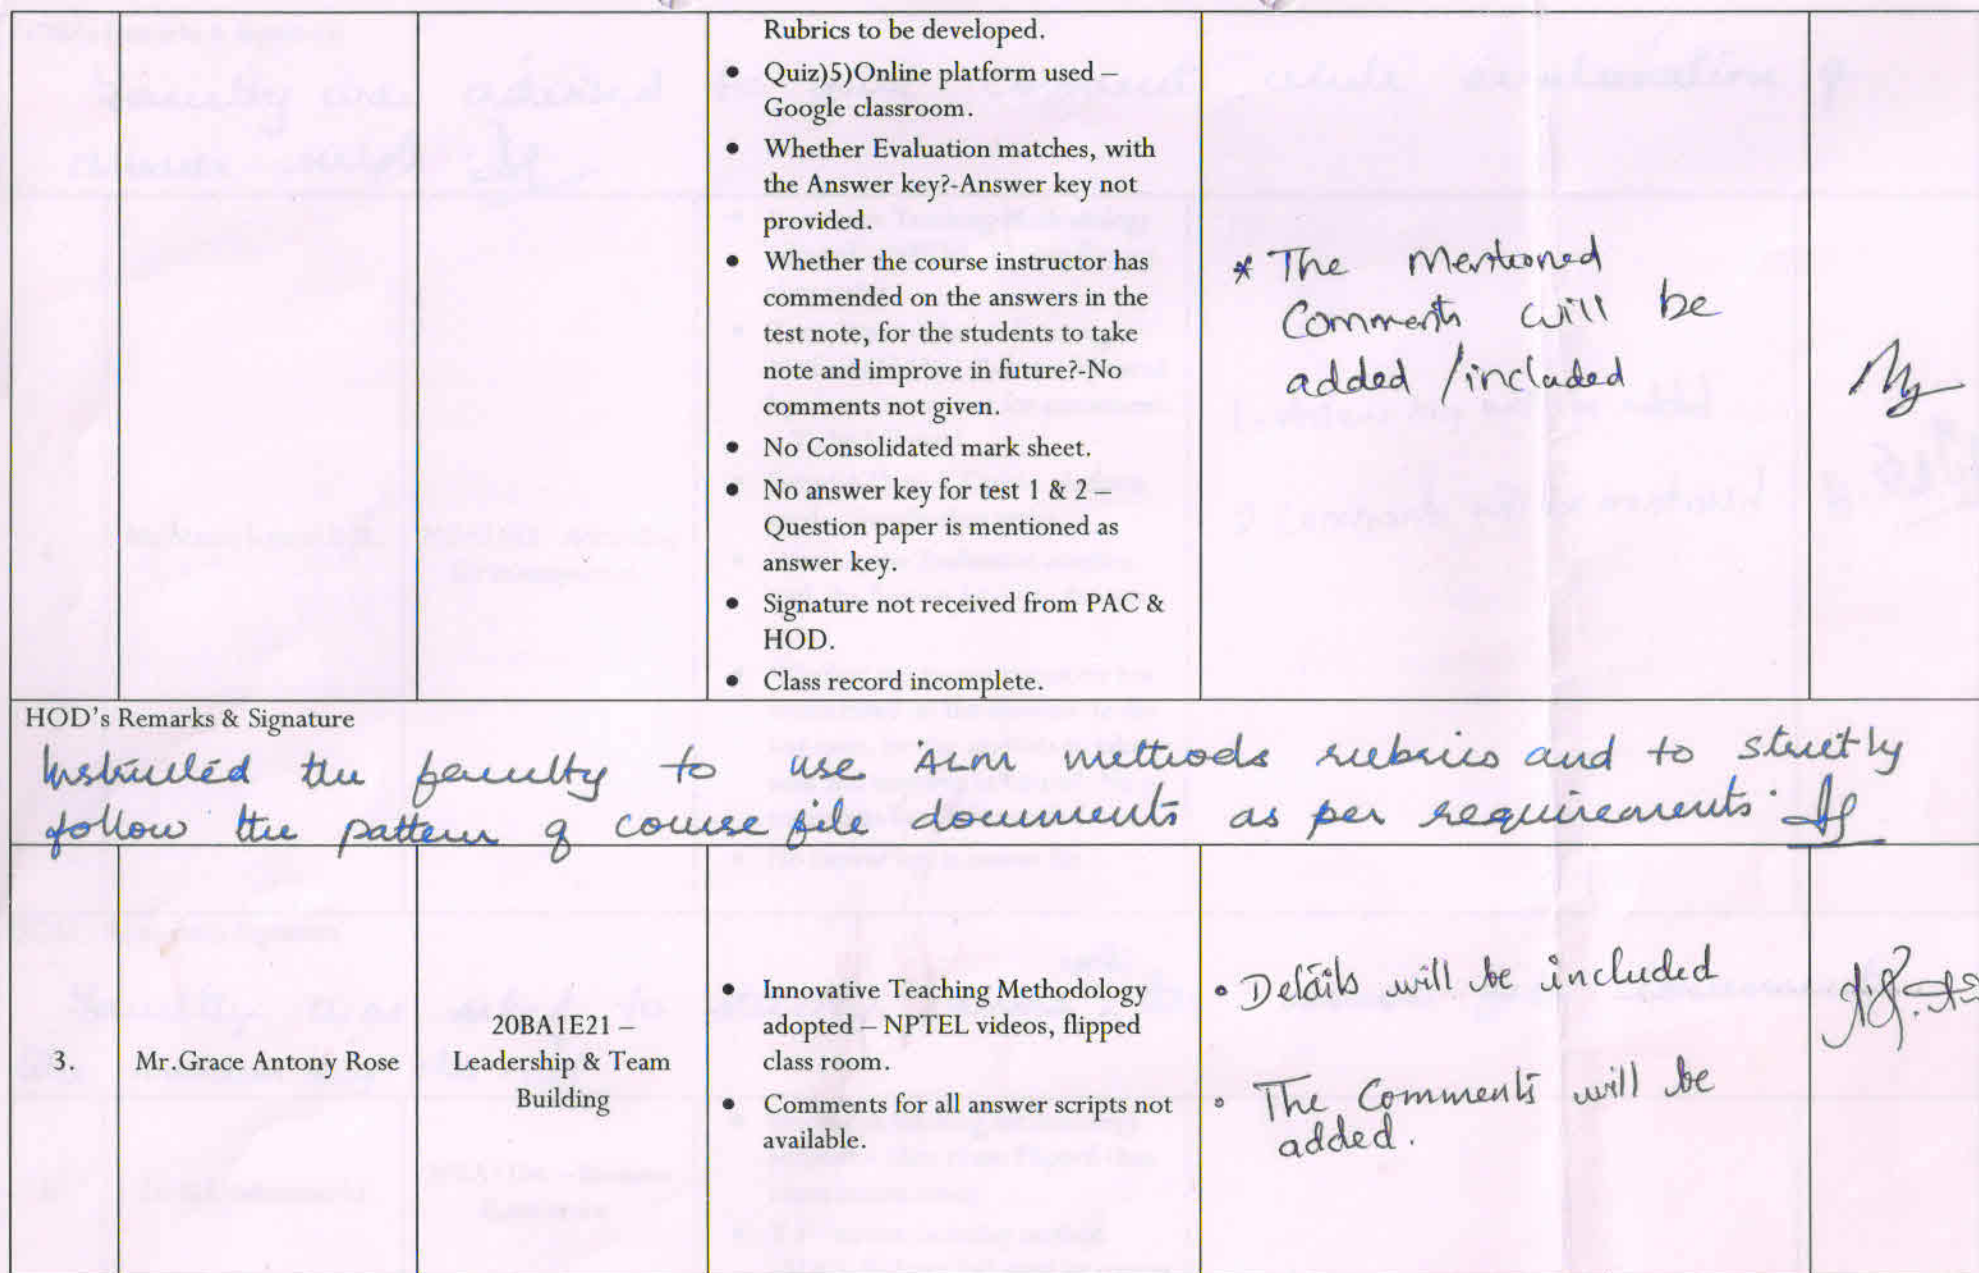 Rubrics to be developed.
• Quiz)5)Online platform used –
Google classroom.
• Whether Evaluation matches, with
the Answer key?-Answer key not
provided.
• Whether the course instructor has
commended on the answers in the
test note, for the students to take
note and improve in future?-No
comments not given.
• No Consolidated mark sheet.
• No answer key for test 1 & 2 –
Question paper is mentioned as
answer key.
• Signature not received from PAC &
HOD.
• Class record incomplete.
* The Mentioned
Comments will be
added /included
HOD's Remarks & Signature
Instructed the faculty to use ALM methods rubrics and to strictly
follow the pattern of course file documents as per requirements.
3.
Mr.Grace Antony Rose
20BA1E21 –
Leadership & Team
Building
• Innovative Teaching Methodology
adopted – NPTEL videos, flipped
class room.
• Comments for all answer scripts not
available.
• Details will be included
• The Comments will be
added.